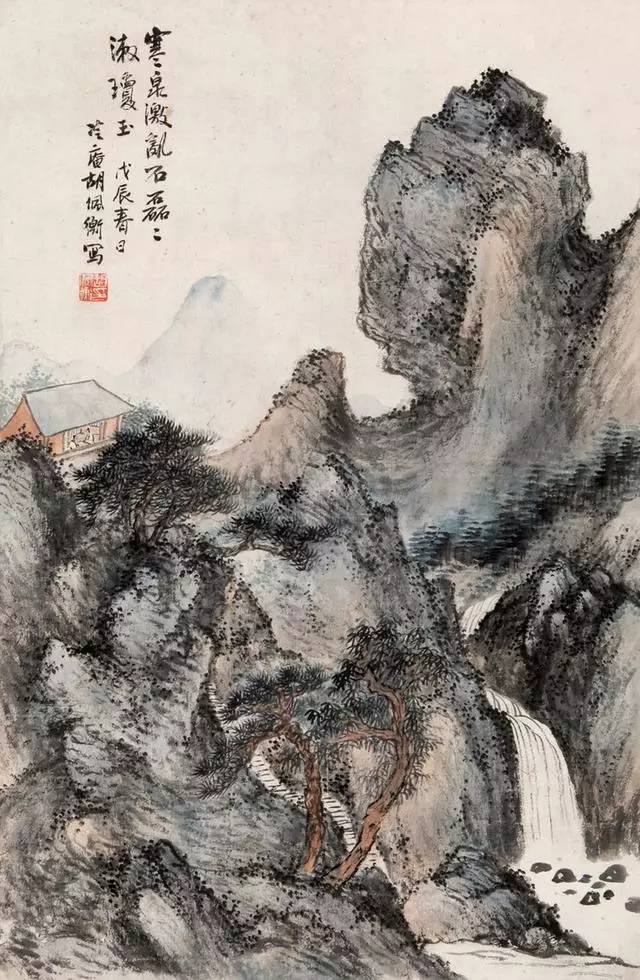 寒泉激亂石磊〻
漱瓊玉 戊辰春日
冷庵胡佩衡寫